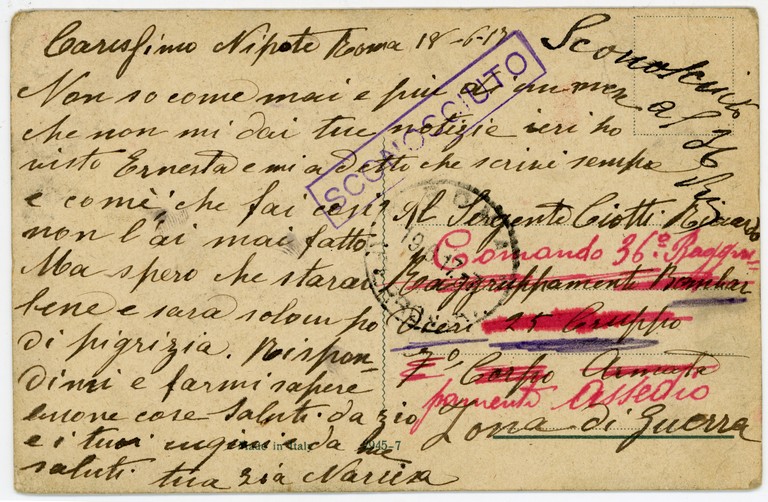 Carissimo Nipote Roma 18-6-17
Non so come mai e piu di un mese
che non mi dai tue notizie ieri ho
visto Ernesta e mi a detto che scrivi sempre
e com'è che fai cosi
non l'ai mai fatto
Ma spero che starai
bene e sara solo un po
di pigrizia. Rispon-
dimi e farmi sapere
buone cose Saluti da zio
e i tuoi cugini e da me
saluti tua zia Narcisa
Sconosciuto
al 36
SCONOSCIUTO
ROMA
Al Sergente Ciotti Riccardo
Comando 36º Raggru-
Raggruppamento Bombar
dieri 25 Gruppo
7º Corpo Armata
pamento Assedio
Zona di Guerra
Made in Italy
945-7